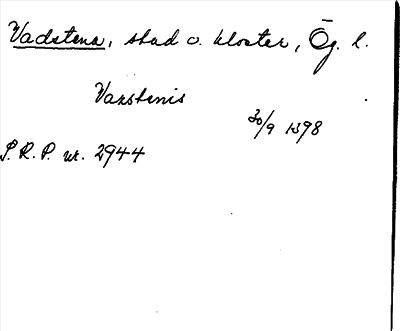 Vadstena, stad o. kloster, Ög. l.
Vazstenis
30/9 1398
S.R.P. nr. 2944